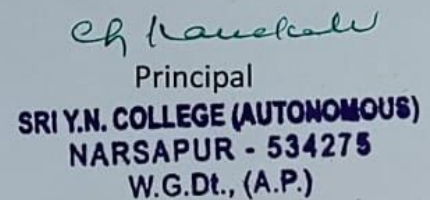 Principal
SRI Y.N. COLLEGE (AUTONOMOUS)
NARSAPUR - 534275
W.G.Dt., (A.P.)